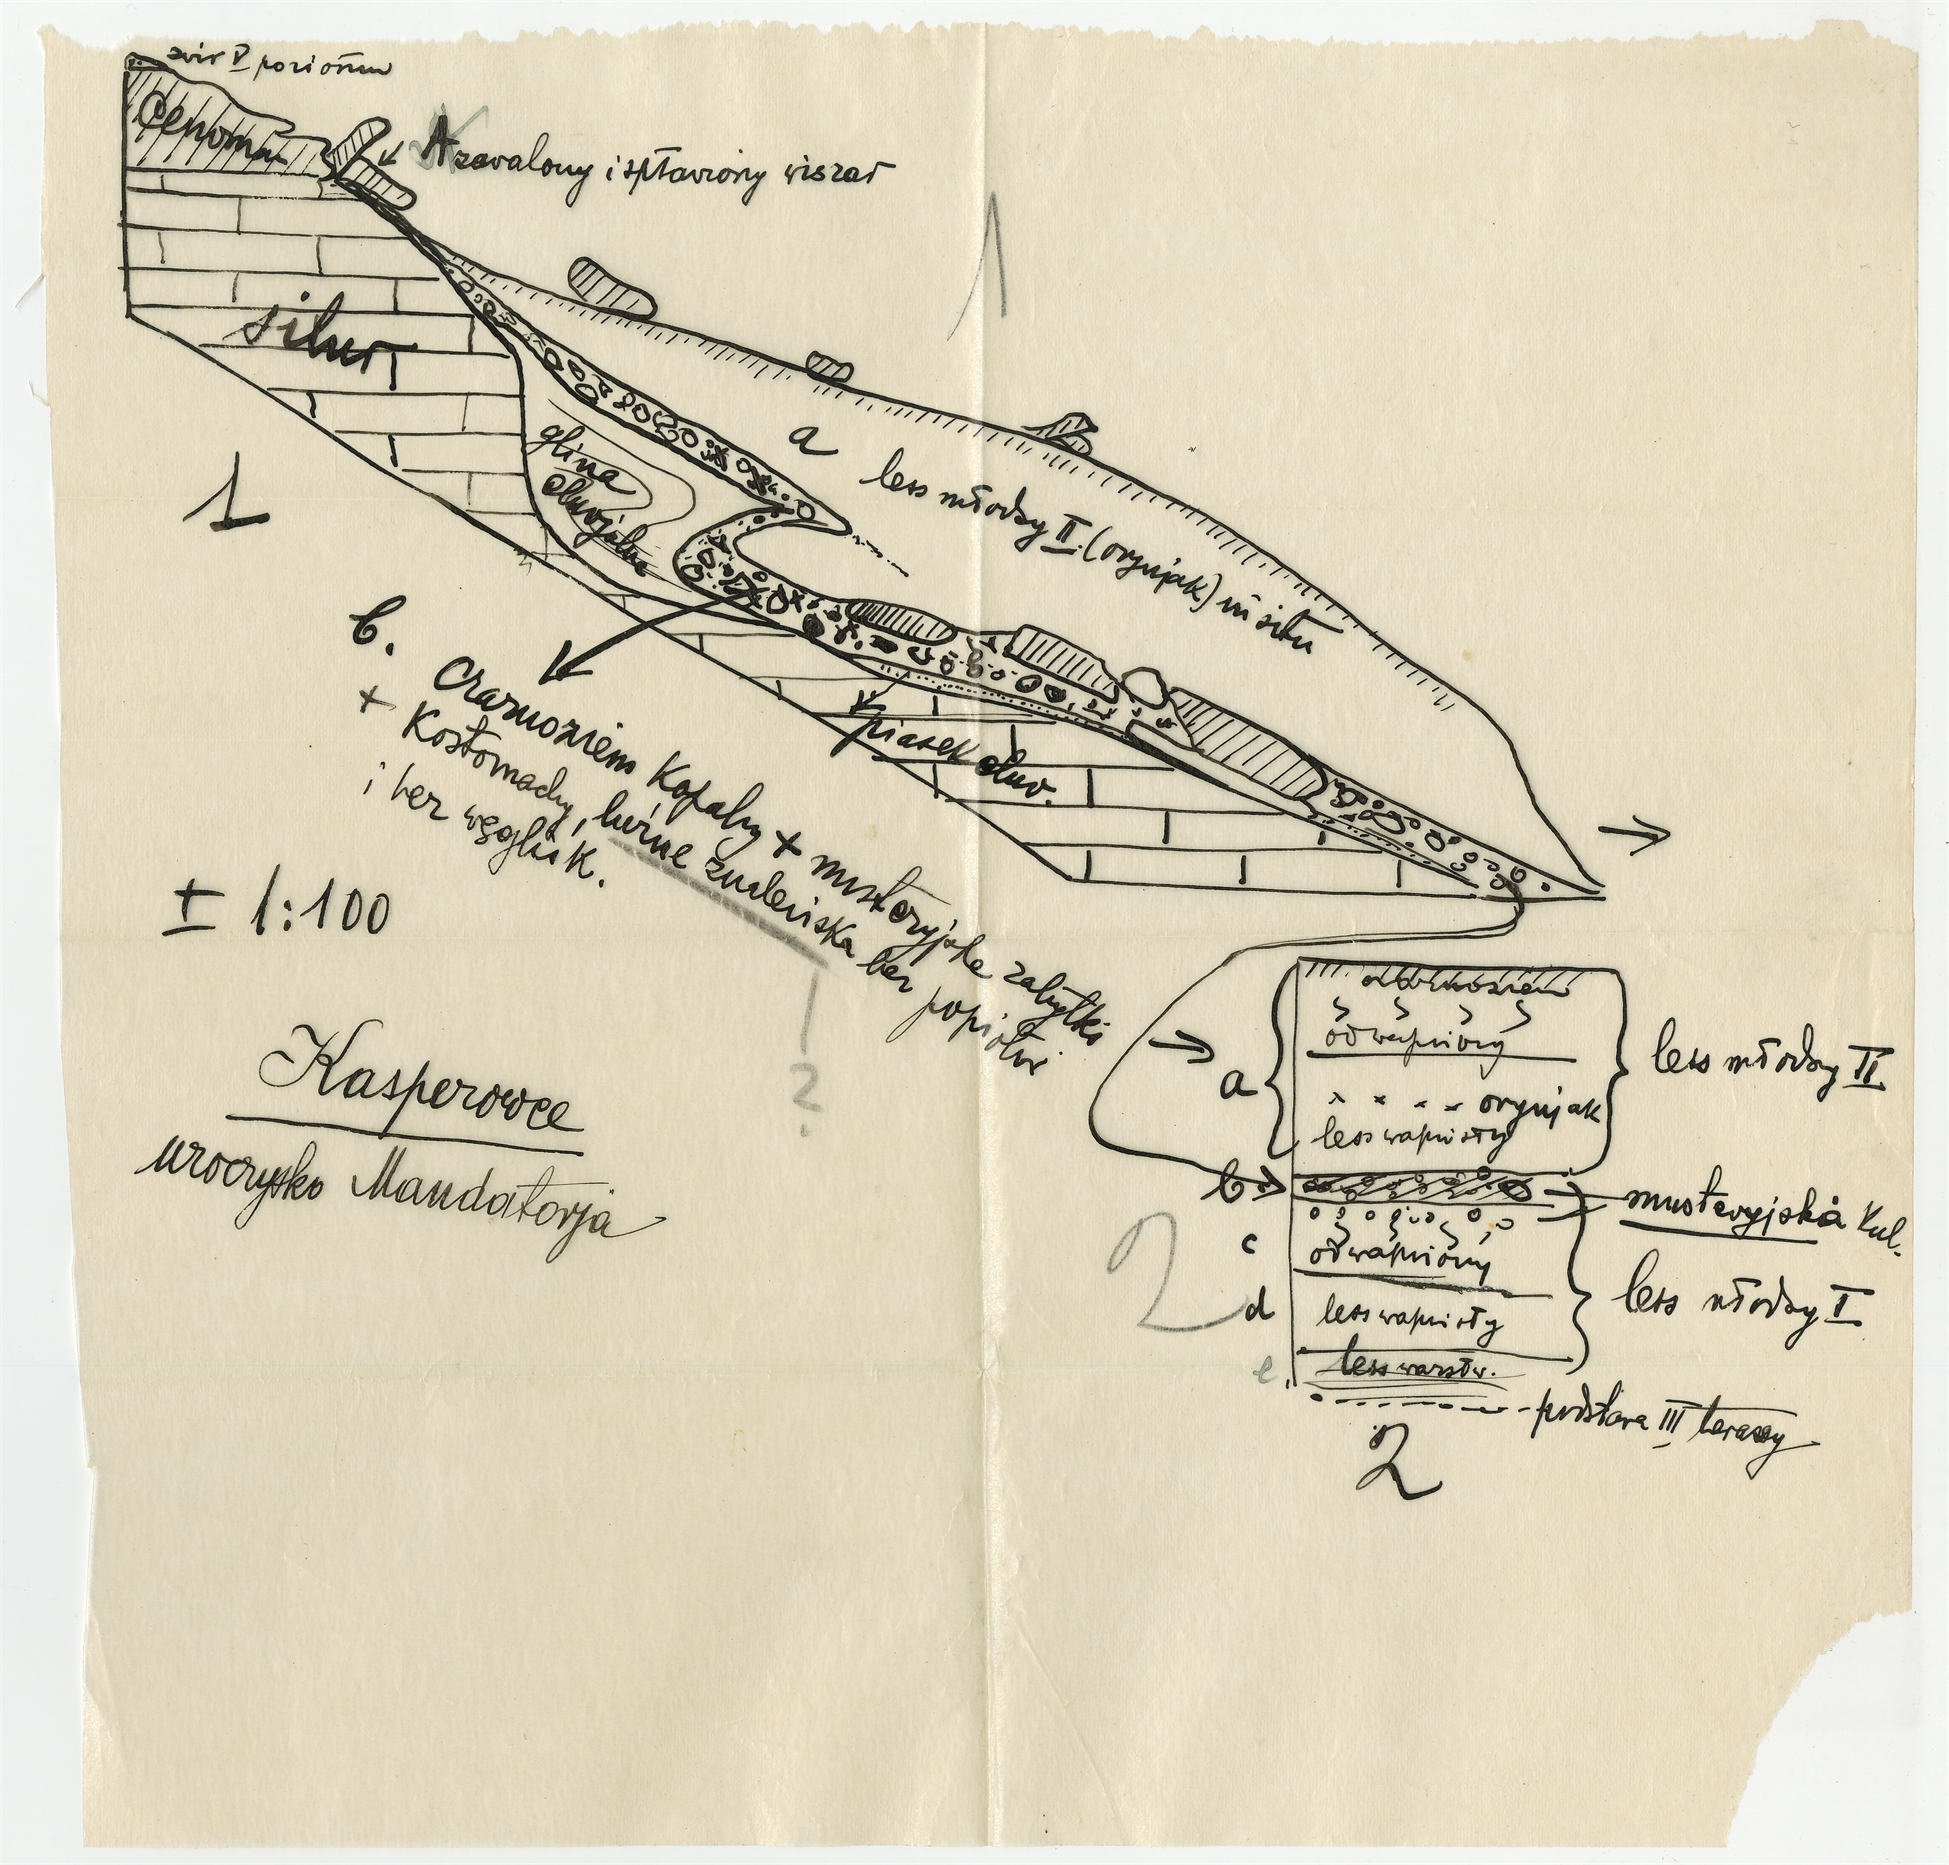 żwir V poziomu
Cenoman
A zawalony i spławiony wiszar
1
silur
a
less młodszy II (orynjak) in situ
glina
eluvjalna
1
b.
Czarnoziem Kopalny + musteryjskie zabytki
+ Kostomachy, luźne znaleziska bez popiołu
i bez węglik.
piasek eluv.
± 1:100
Kasperowce
uroczysko Mandatorja
?
czarnoziem
odwapniony
a
orynjak
less wapnisty
less młodszy II
b
musteryjska Kul.
c
odwapniony
2
d
less wapnisty
less młodszy I
e
less warstw.
podstawa III terasy
2